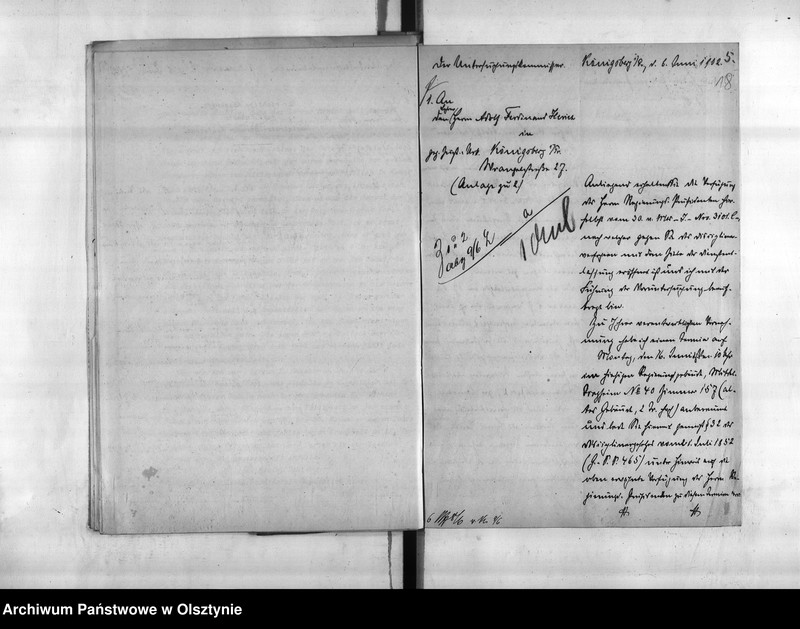 Der Untersuchungskommissar.
Königsberg Pr., d. 6. Juni 1902.
5.
18
1. An
den Herrn Adolf Ferdinand
in
Königsberg Pr.
Wrangelstraße 27.
(Anlage zu 2)
Anliegend erhalten Sie die Verfügung
des Herrn Regierungs-Präsidenten hier-
selbst vom 30. v. Mts.
nach welcher gegen Sie das Disziplinar-
verfahren mit dem Ziele der Dienstent-
lassung eröffnet ist und ich mit der
Führung der Voruntersuchung beauf-
tragt bin.
Zu Ihrer verantwortlichen Verneh-
mung habe ich einen Termin auf
Montag, den 16. Juni 10 Uhr
im hiesigen Regierungsgebäude, Mittel
Tragheim No 40 Zimmer 157 (al-
tes Gebäude, 2 Tr. hoch) anberaumt
und lade Sie hiermit gemäß § 32 des
Disziplinargesetzes vom 21. Juli 1852
(G. S. S. 465) unter Hinweis auf die
oben erwähnte Verfügung des Herrn Re-
gierungs-Präsidenten zu diesem Termin
Archiwum Państwowe w Olsztynie